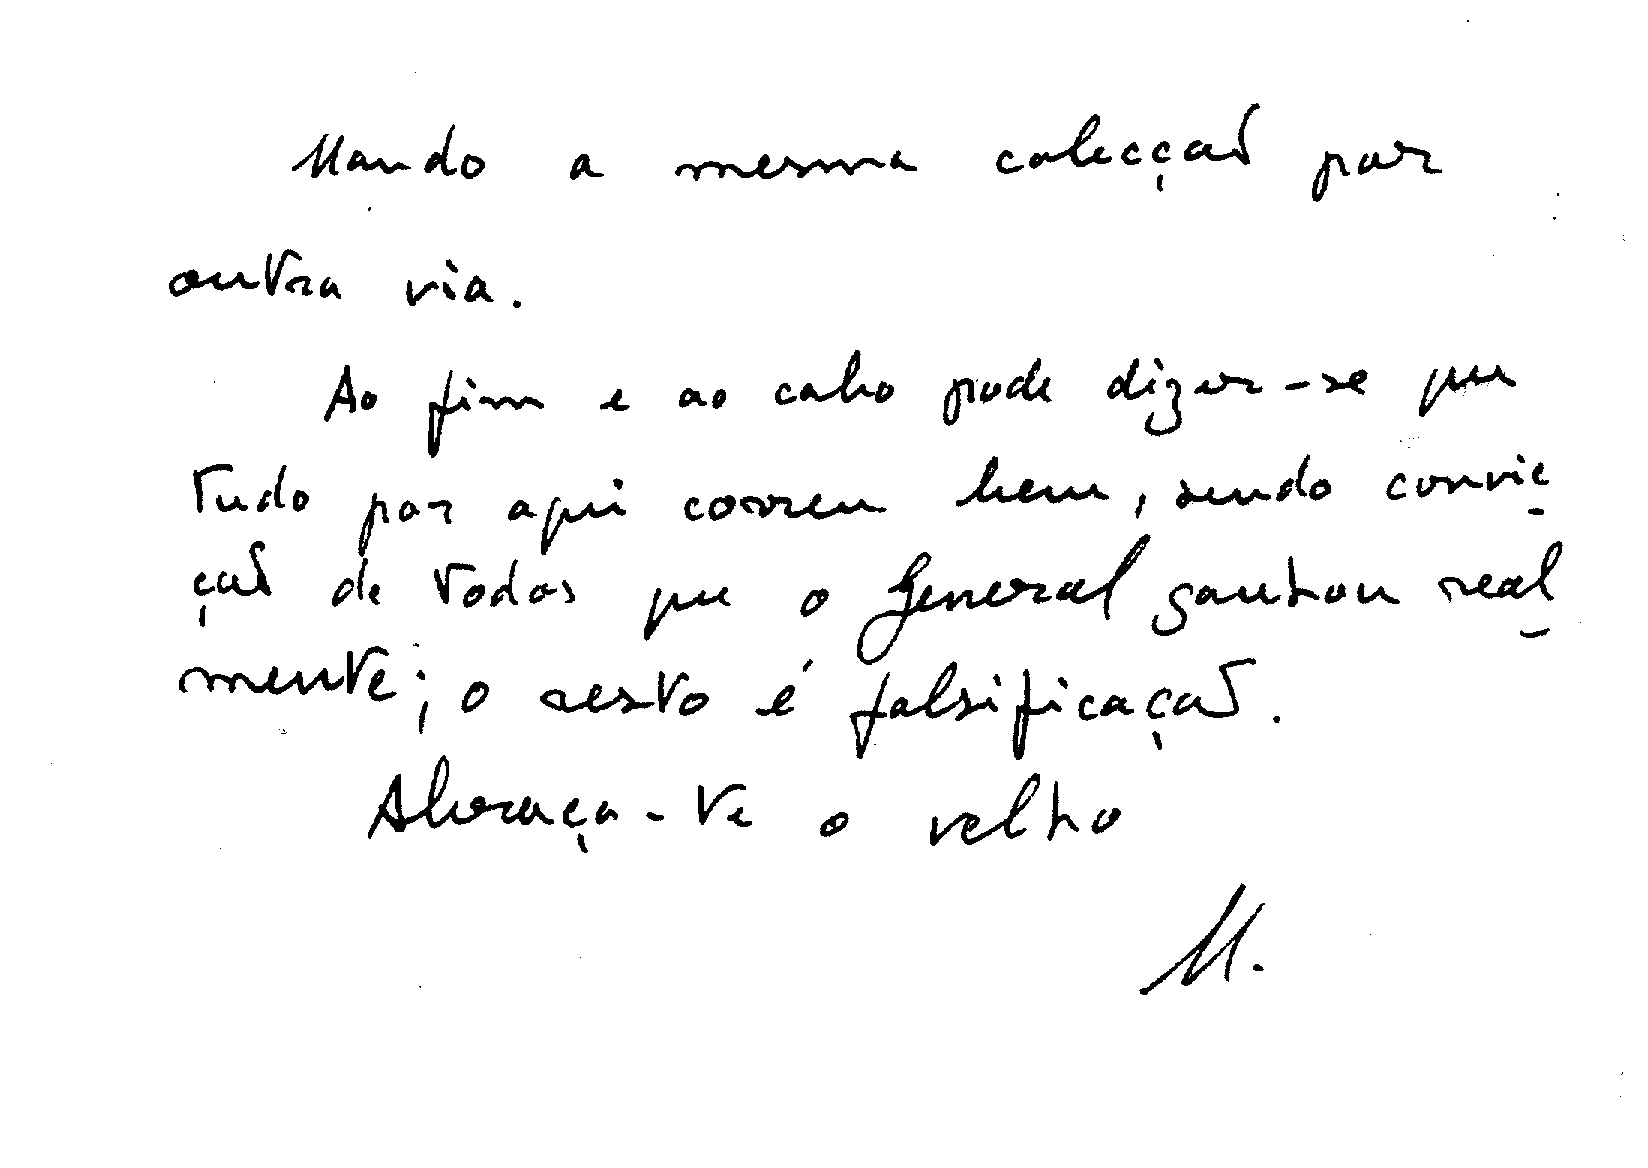 Mando a mesma colecção por
outra via.
Ao fim e ao cabo pode dizer-se que
tudo por aqui correu bem, sendo convic
ção de todos que o General ganhou real
mente; o resto é falsificação.
Abraça-te o velho
M.